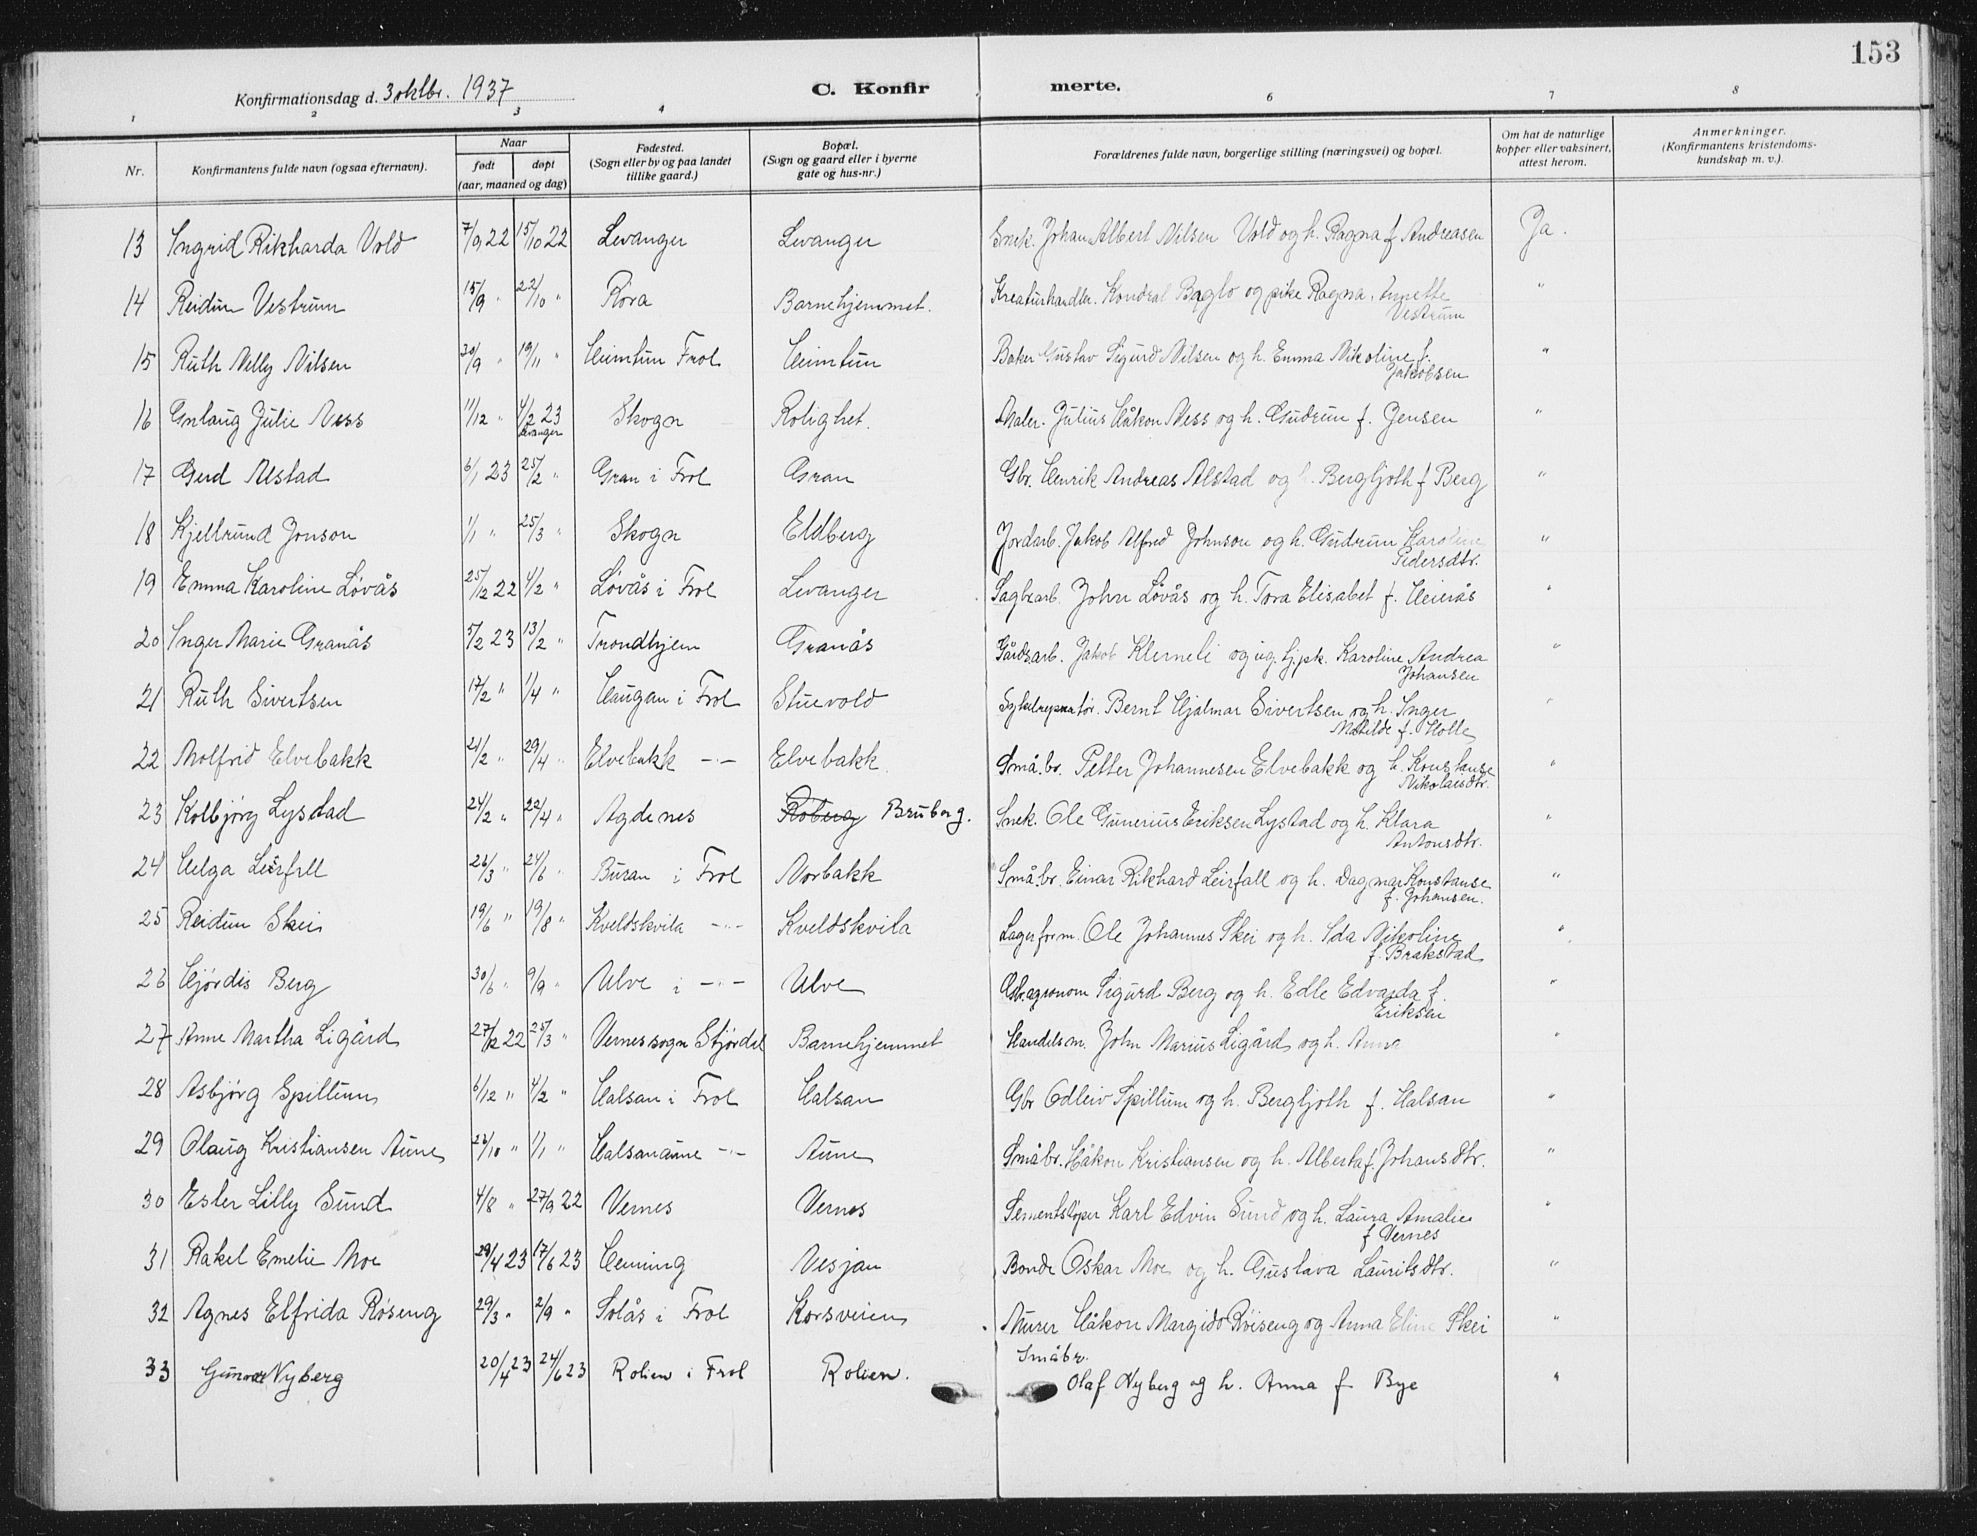 153
Konfirmationsdag d. 3 oktbr. 1937
C. Konfir merte.
1 2 3 4 6 7 8
Nr. Konfirmantens fulde navn (ogsaa efternavn). Naar født døpt (aar, maaned og dag) Fødested. (Sogn eller by og paa landet tillike gaard.) Bopæl. (Sogn og gaard eller i byerne gate og hus-nr.) Forældrenes fulde navn, borgerlige stilling (næringsvei) og bopæl. Om hat de naturlige kopper eller vaksinert, attest herom. Anmerkninger. (Konfirmantens kristendoms-kundskap m. v.).
13 Ingrid Rikharda Vold 7/9 22 15/10 22 Levanger Levanger Snek. Johan Albert Nilsen Vold og h. Ragna f Andreasen Ja.
14 Reidun Vestrum 15/9 " 22/10 " Røra Barnehjemmet. Kreaturhandler. Kondral Baglo og pike Ragna Annette Vestrum "
15 Ruth Nelly Nilsen 30/9 " 19/11 " Heimtun Frol Heimtun Baker Gustav Sigurd Nilsen og h. Emma Nikoline f. Jakobsen "
16 Gnlaug Julie Ness 11/12 " 4/2 23 Levanger Skogn Rolighet. Maler. Julius Håkon Ness og h. Gudrun f. Jensen "
17 Gerd Alstad 6/1 23 25/2 " Gran i Frol Gran Gbr. Henrik Andreas Alstad og h. Bergljoth f Berg "
18 Kjellrund Jonson 1/1 " 25/3 " Skogn Eldberg Jordarb. Jakob Alfred Johnson og h. Gudrun Karoline Pedersdtr. "
19 Emma Karoline Løvås 25/12 22 4/2 " Løvås i Frol Levanger Sagbr.arb. John Løvås og h. Tora Elisabet f. Heierås "
20 Inger Marie Granås 5/2 23 13/2 " Trondhjem Granås Gårdsarb. Jakob Klemeli og ug. tjpk. Karoline Andrea Johansen "
21 Ruth Sivertsen 17/2 " 1/4 " Haugan i Frol Stuevold Sykkelreparatør. Bernt Hjalmar Sivertsen og h. Inger Matilde f. Holte "
22 Molfrid Elvebakk 21/2 " 29/4 " Elvebakk -"- Elvebakk Små.br. Petter Johannesen Elvebakk og h. Konstanse Nikolaisdtr. "
23 Kolbjørg Lystad 24/2 " 22/4 " Agdenes Røberg Bruborg. Snek. Ole Gunerius Eriksen Lystad og h. Klara Antonsdtr. "
24 Helga Leirfall 26/3 " 24/6 " Buran i Frol Norbakk Små.br. Einar Rikhard Leirfall og h. Dagmar Konstanse f. Johansen. "
25 Reidun Skei 19/6 " 19/8 " Kveldskvila -"- Kveldskvila Lagerform. Ole Johannes Skei og h. Ida Nikoline f. Brakstad "
26 Hjørdis Berg 30/6 " 9/9 " Ulve i -"- Ulve Gbr. agronom Sigurd Berg og h. Edle Edvarda f. Eriksen "
27 Anne Martha Ligård 27/12 22 25/3 " Vernessogn Stjørdal Barnehjemmet Handelsm. John Marius Ligård og h. Anna "
28 Asbjørg Spillum 6/12 " 4/2 " Halsan i Frol Halsan Gbr Odleiv Spillum og h. Bergljoth f. Halsan "
29 Olaug Kristiansen Aune 22/10 " 1/1 " Halsanaune -"- Aune Småbr. Håkon Kristiansen og h. Alberta f. Johansdtr. "
30 Ester Lilly Sund 4/8 " 27/9 22 Vernes Vernes Sementstøper Karl Edvin Sund og h. Laura Amalie f Vernes "
31 Rakel Emelie Moe 29/4 23 17/6 23 Henning Nesjan Bonde Oskar Moe og h. Gustava Lauritsdtr. "
32 Agnes Elfrida Røseng 29/3 " 2/9 " Solås i Frol Korsveien Murer Håkon Margido Røiseng og Anna Eline Skei "
33 Gunvor Nyberg 20/4 23 24/6 23 Rolien i Frol Rolien. Småbr. Olaf Nyberg og h. Anna f Bye "